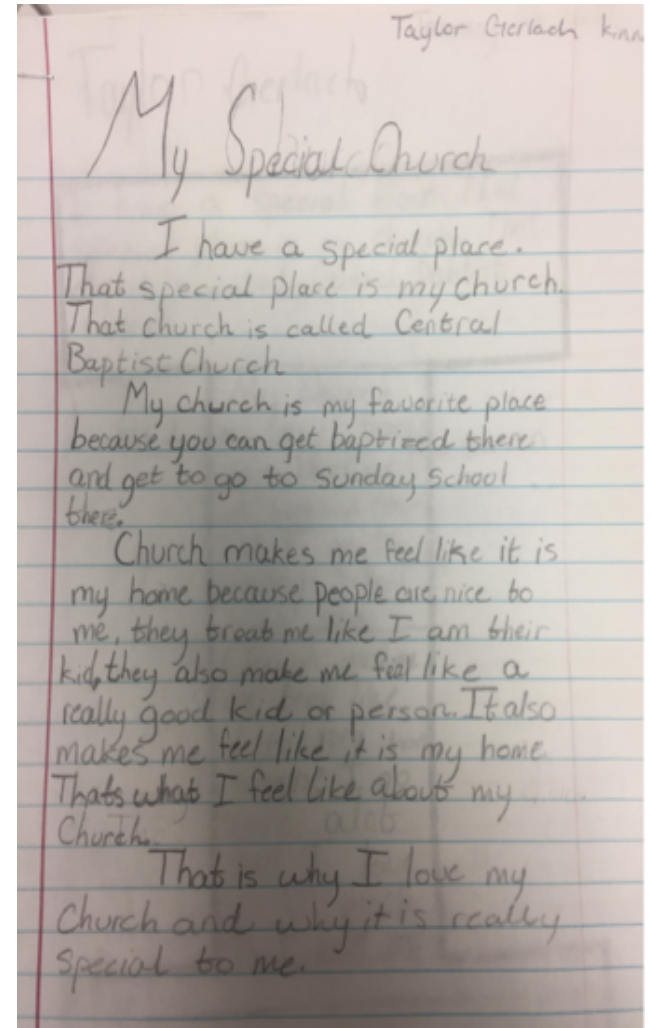 Taylor Gerlach kinn
My Special Church
I have a special place.
That special place is my church.
That church is called Central
Baptist Church
My church is my favorite place
because you can get baptized there
and get to go to Sunday School
there.
Church makes me feel like it is
my home because people are nice to
me, they treat me like I am their
kid, they also make me feel like a
really good kid or person. It also
makes me feel like it is my home
Thats what I feel like about my
Church.
That is why I love my
Church and why it is really
special to me.